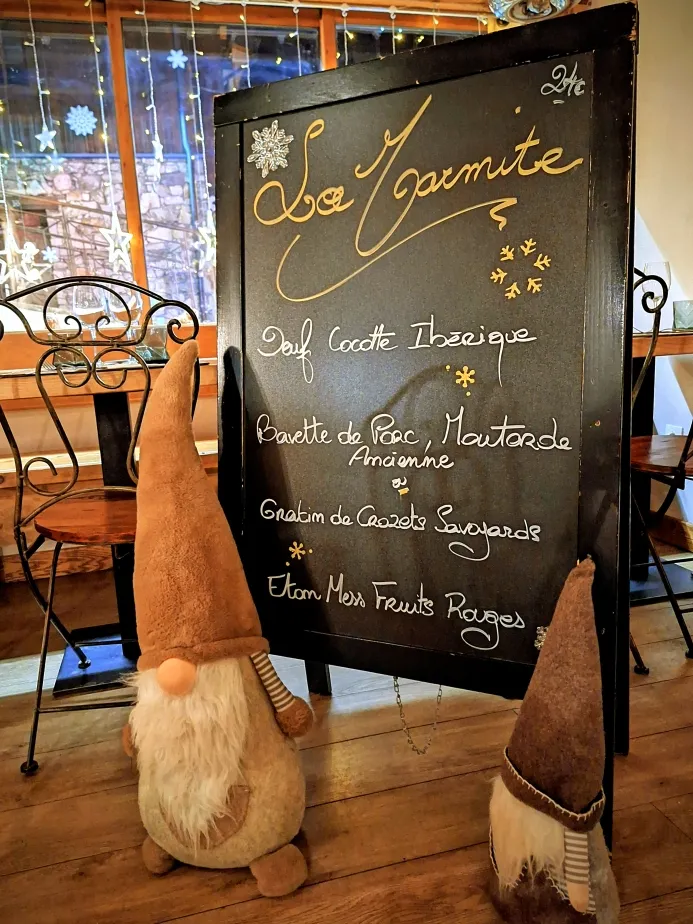 24€
La Marmite
Oeuf Cocotte Ibérique
Bavette de Porc, Moutarde
Ancienne
&
Gratin de Crozets Savoyards
Eton Mess Fruits Rouges